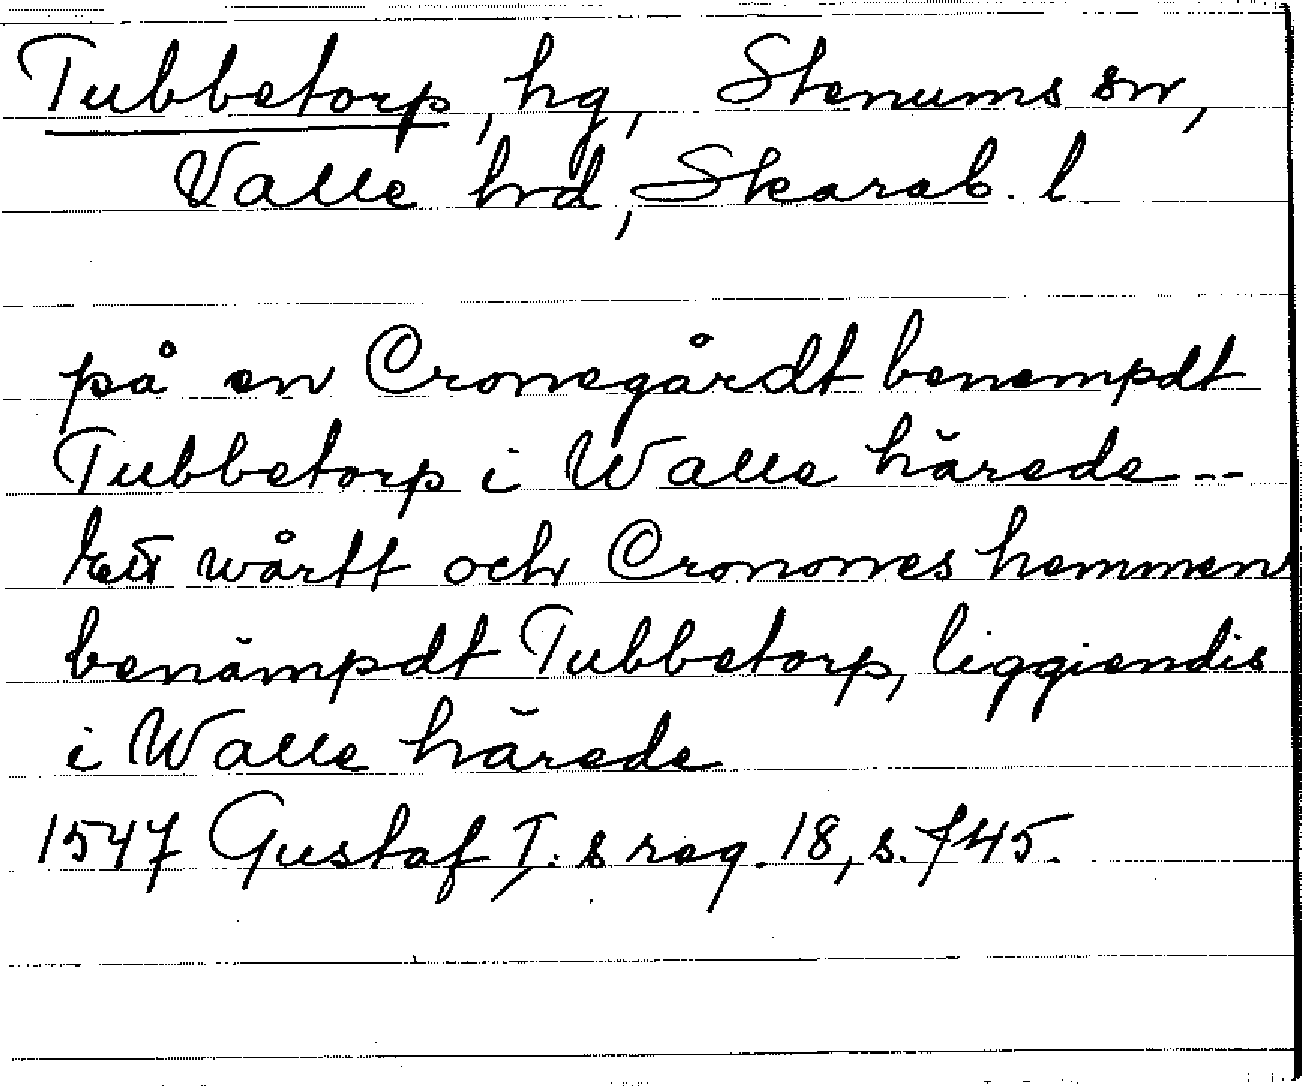 Tubbetorp, hg, Stenums sn,
Valle hrd, Skarab. l
på en Cronegårdt benempdt
Tubbetorp i Walle härede --
Ett wårtt och Cronones hemmen
benämpdt Tubbetorp, liggiendis
i Walle härede
1547 Gustaf I:s reg. 18, s. 745.